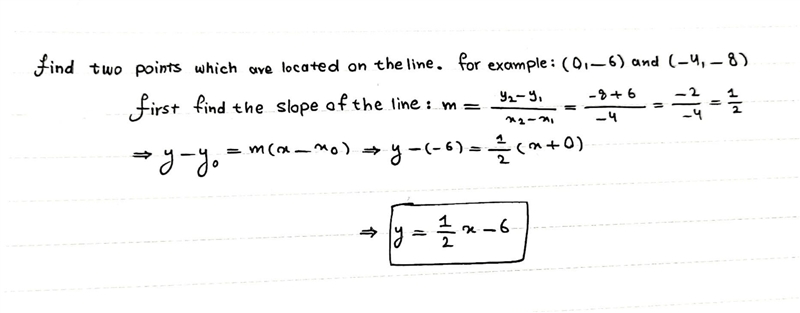 find two points which are located on the line. for example: (0,-6) and (-4,-8)
first find the slope of the line: m = y₂-y₁ / x₂-x₁ = -8+6 / -4 = -2 / -4 = 1/2
⇒ y-y₀ = m(x-x₀) ⇒ y-(-6) = 1/2 (x+0)
⇒ y = 1/2 x-6